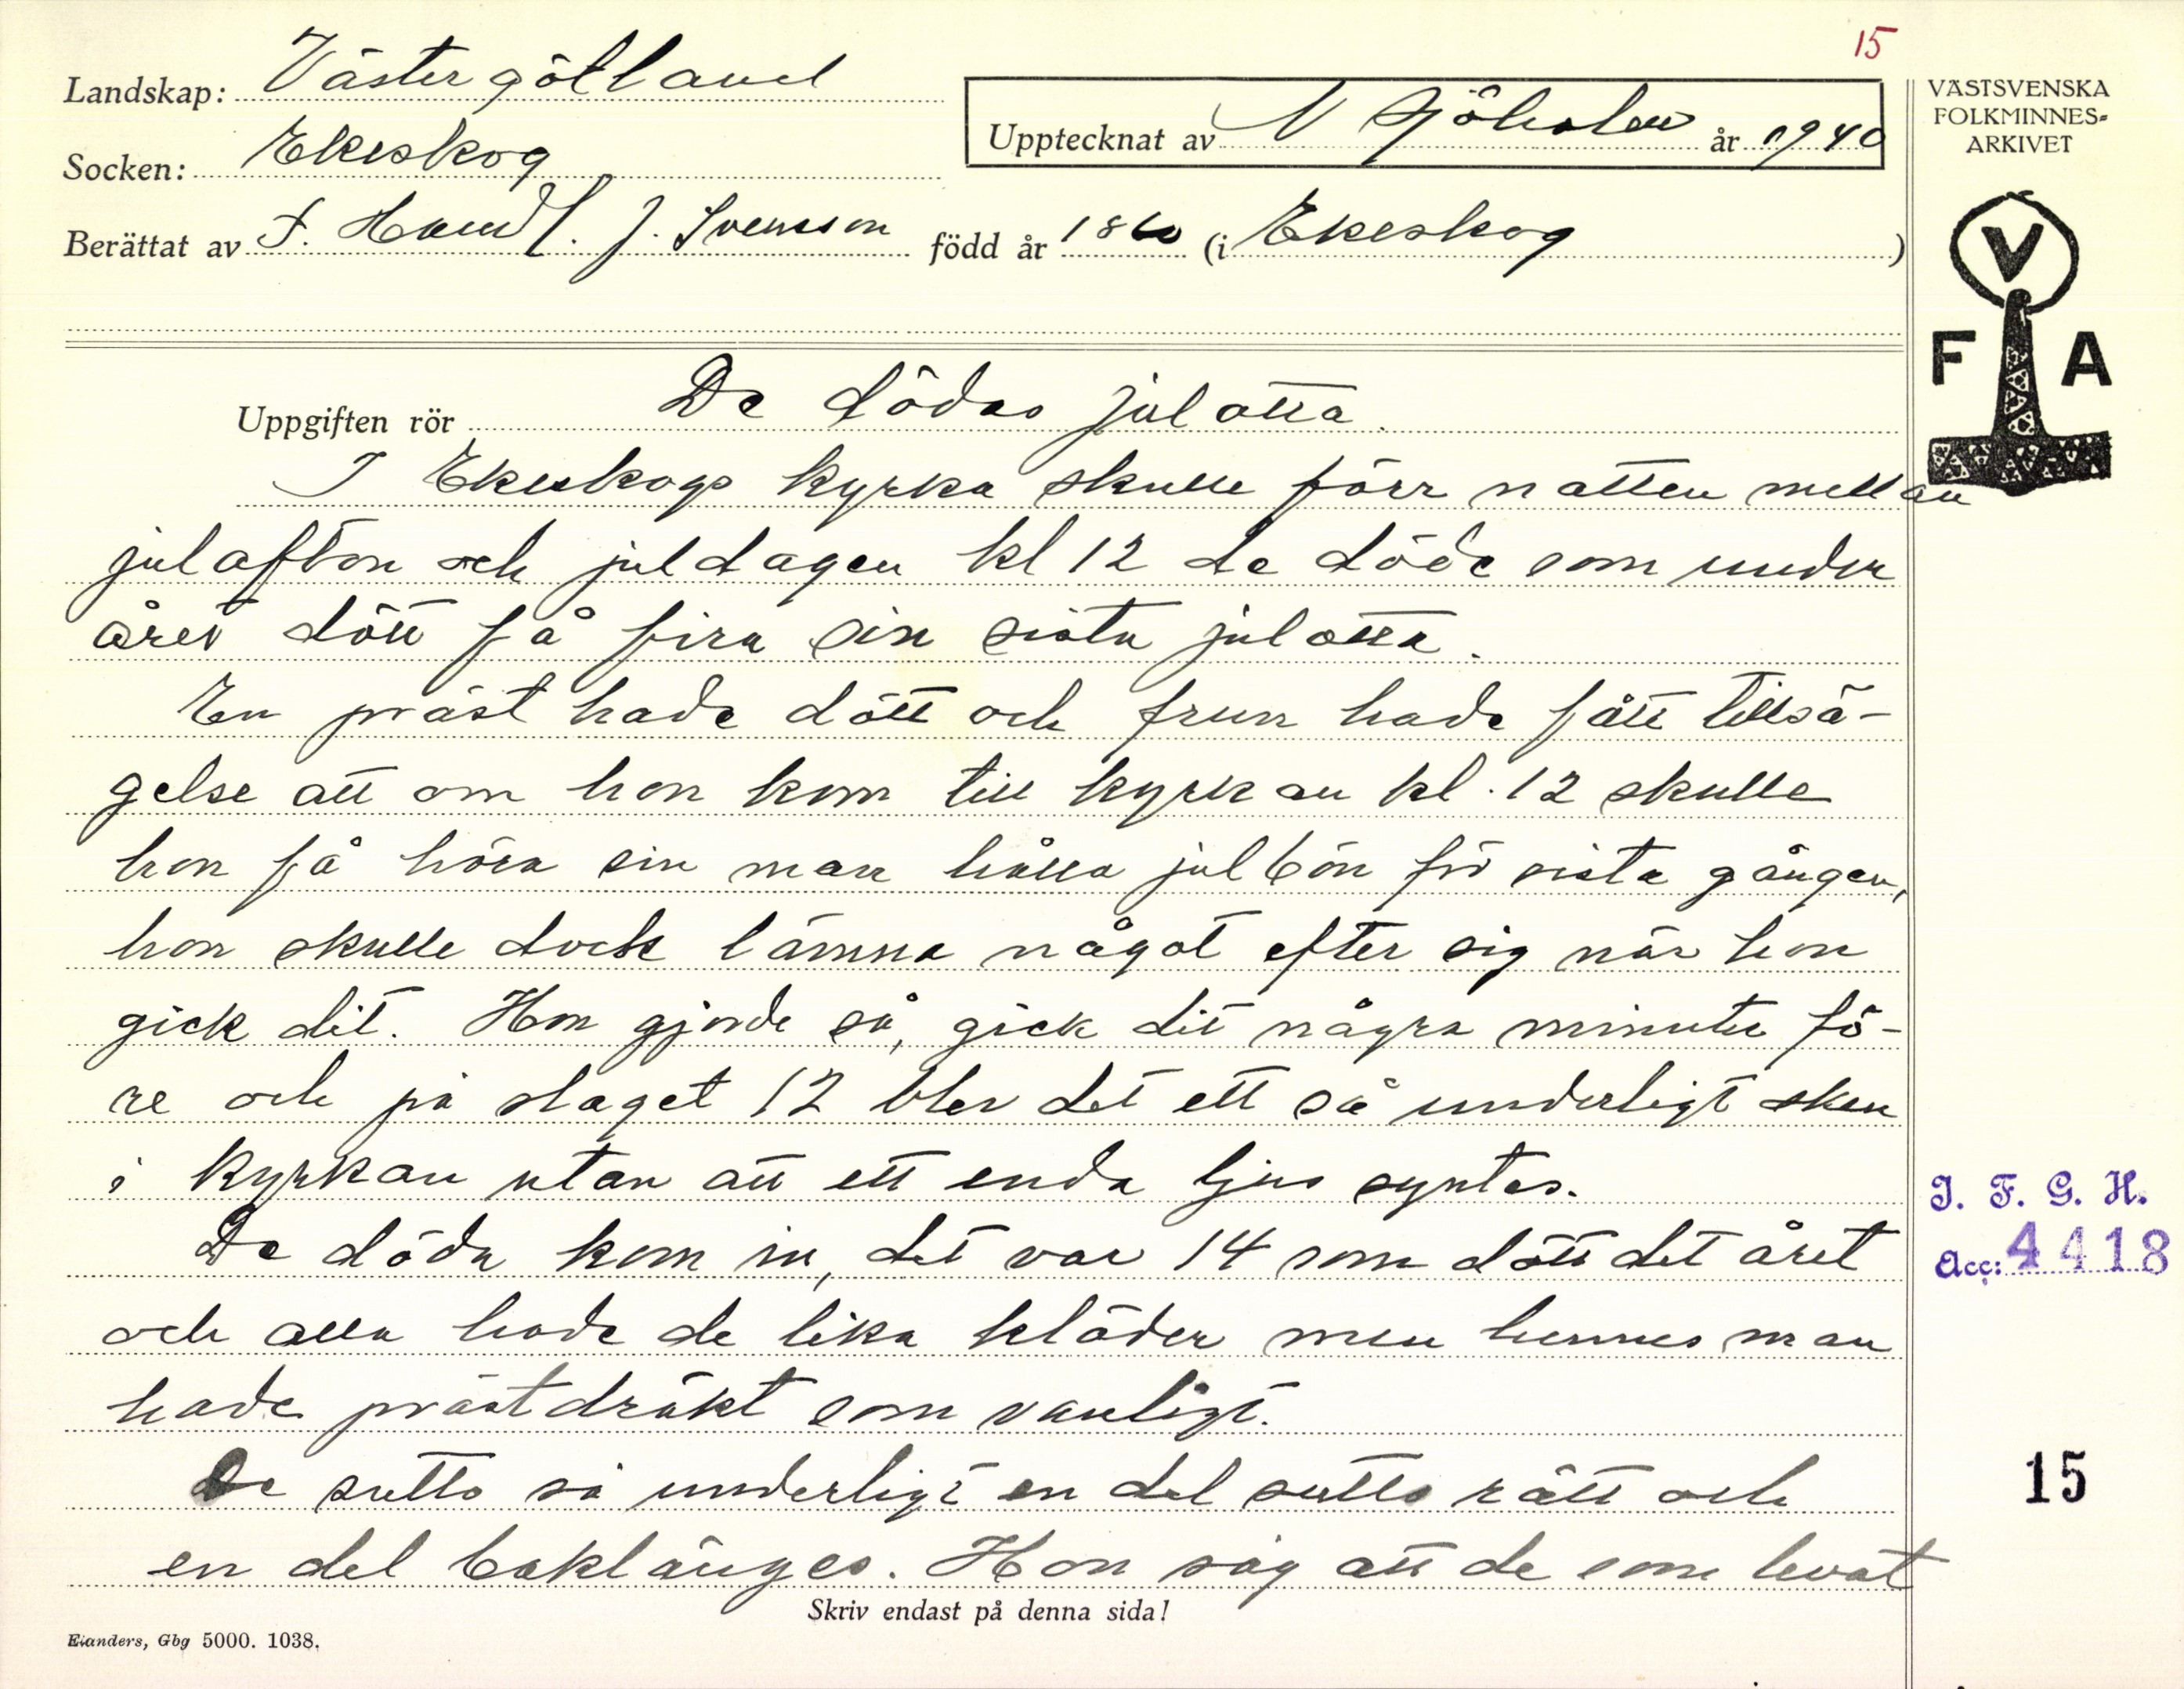 15
Landskap: Västergötland
Upptecknat av N Sjöholm år 1940
VÄSTSVENSKA
FOLKMINNES-
ARKIVET
Socken: Ekeskog
Berättat av F. Handl. J. Svensson född år 1860 (i Ekeskog)
V
F A
Uppgiften rör De dödas julotta.
I Ekeskogs kyrka skulle förr natten mellan
julafton och juldagen kl 12 de döde som under
året dött få fira sin sista julotta.
En präst hade dött och frun hade fått tillsä-
gelse att om hon kom till kyrkan kl. 12 skulle
hon få höra sin man hålla julbön för sista gången,
hon skulle dock lämna något efter sig när hon
gick dit. Hon gjorde så, gick dit några minuter fö-
re och på slaget 12 blev det ett så underligt sken
i kyrkan utan att ett enda ljus syntes.
De döda kom in, det var 14 som dött det året
och alla hade de lika kläder men hennes man
hade prästdräkt som vanligt.
De sutto så underligt en del sutto rätt och
en del baklänges. Hon såg att de som levat
I. F. G. H.
Acc: 4418
15
Skriv endast på denna sida!
Elanders, Gbg 5000. 1038.